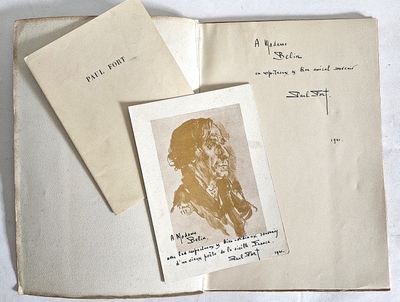 PAUL FORT
A Madame
Belin
en respectueux & bien amical souvenir
Paul Fort.
1941.
A Madame
Belin,
avec les respectueux & bien cordiaux souvenirs
d'un vieux poète de la vieille France.
Paul Fort
1941.